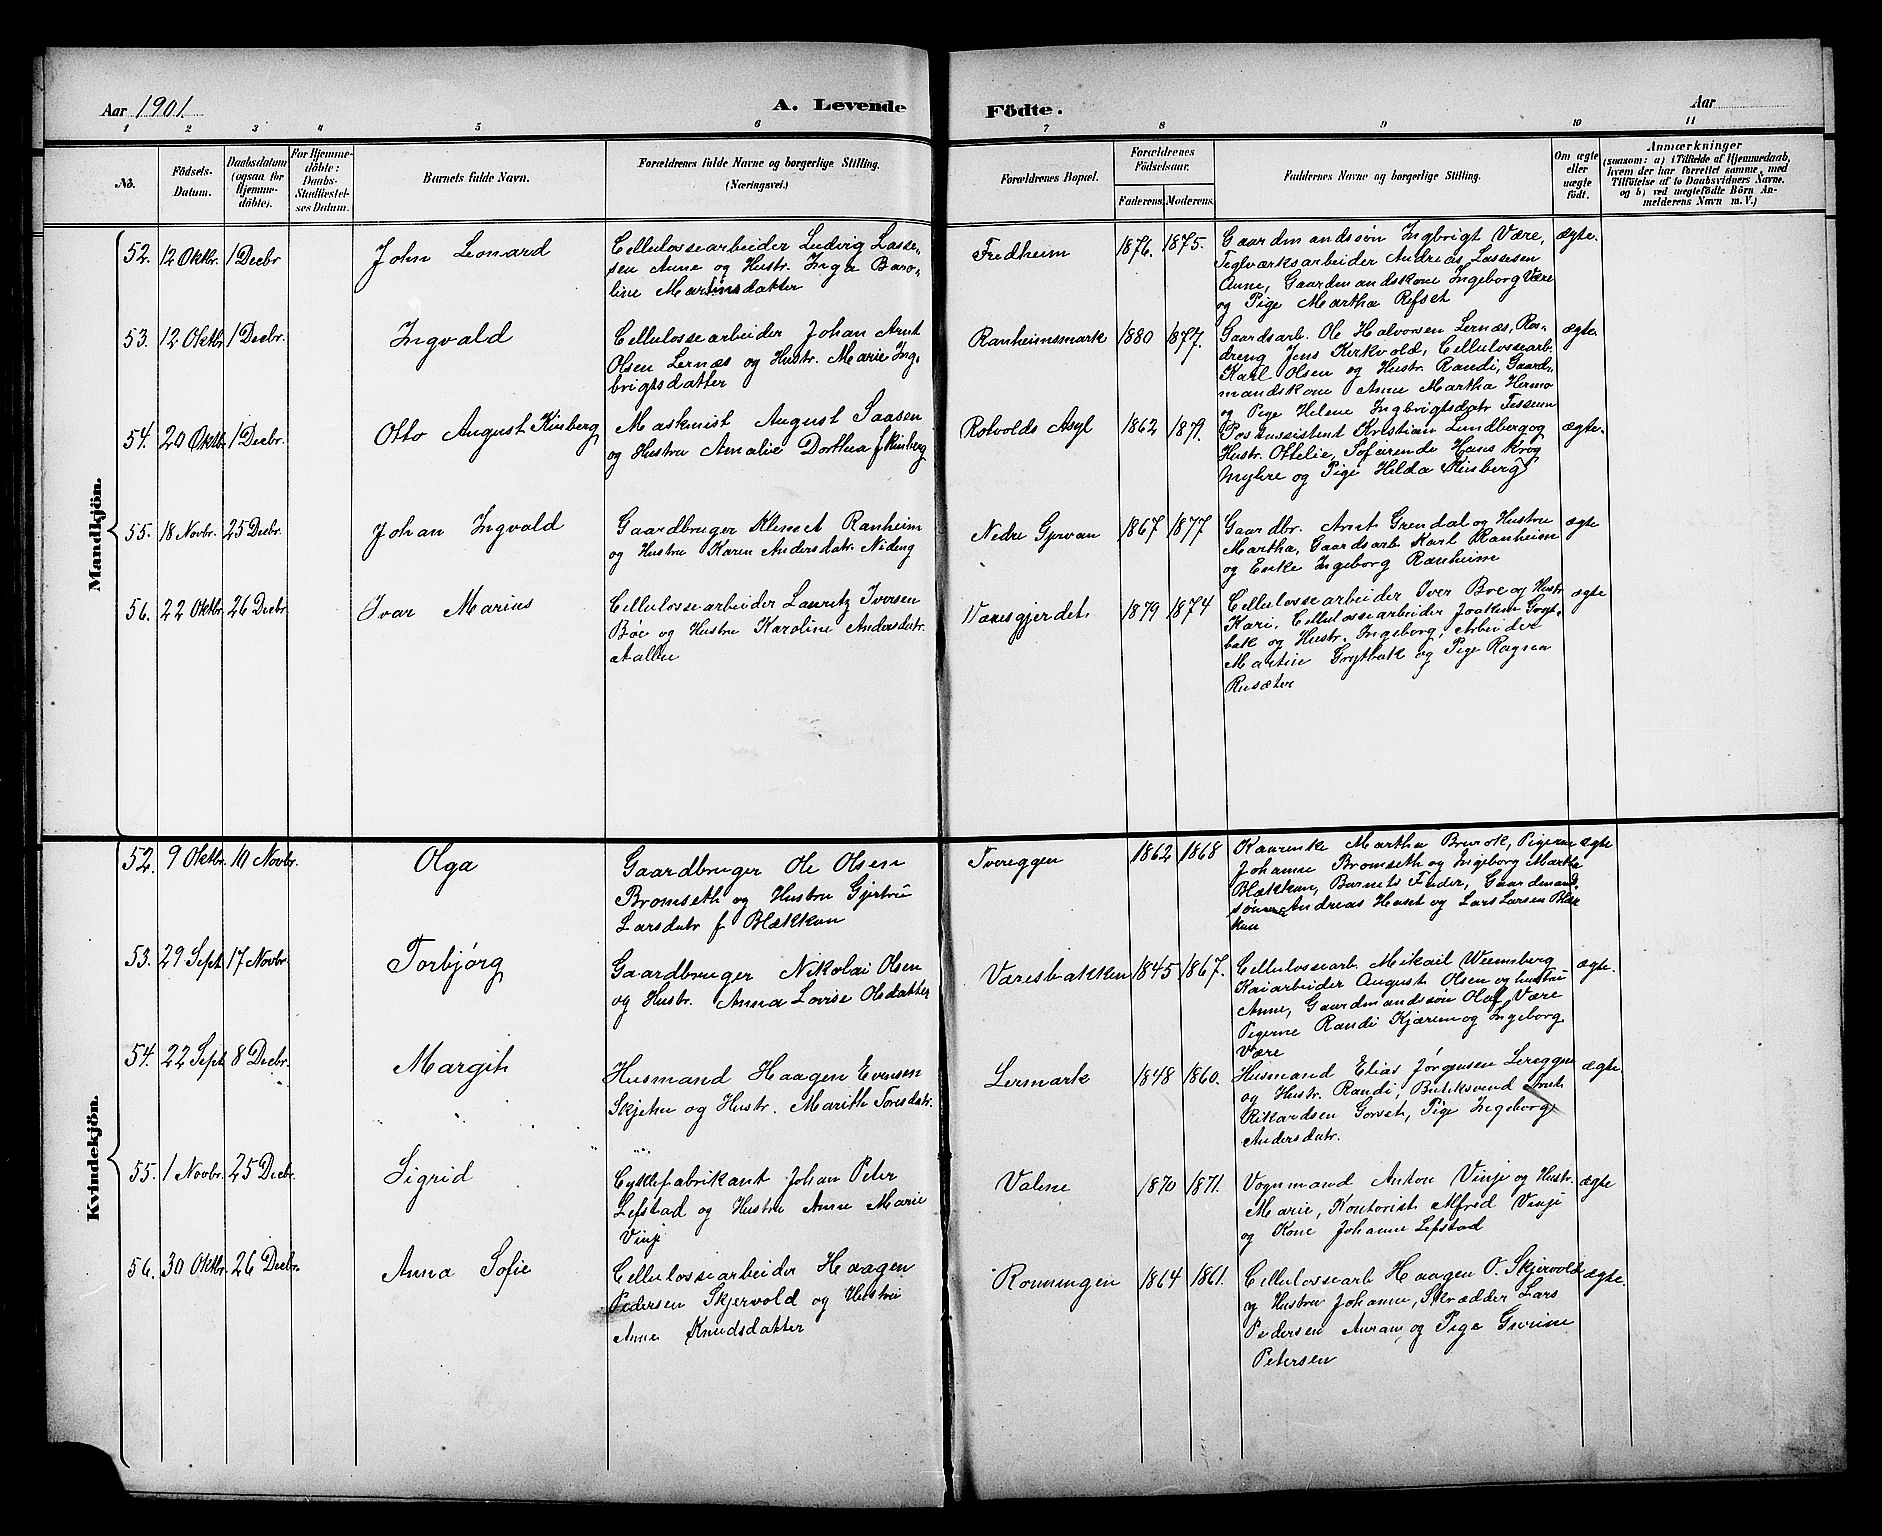 Aar 1901. A. Levende Födte. Aar
1 2 3 4 5 6 7 8 9 10 11
No.
Födsels-
Datum.
Daabsdatum
(ogsaa for
Hjemme-
döbte).
For Hjemme-
döbte:
Daabs-
Stadfæstel-
ses Datum.
Barnets fulde Navn.
Forældrenes fulde Navne og borgerlige Stilling.
(Næringsvei.)
Forældrenes Bopæl.
Forældrenes
Födselsaar.
Faderens. Moderens.
Faddernes Navne og borgerlige Stilling.
Om ægte
eller
uægte
födt.
Anmærkninger
(saasom: a) i Tilfælde af Hjemmedaab,
hvem der har forrettet samme, med
Tilföielse af to Daabsvidners Navne,
og b) ved uægtefödte Börn An-
melderens Navn m. V.)
Mandkjön.
52. 12 Oktbr. 1 Decbr
John Leonard
Cellulossearbeider Ludvig Lasse-
sen Anne og Hustr. Inga Baro-
line Martinsdatter
Fredheim
1876. 1875.
Gaardmandssøn Ingbrigt Være,
Teglværksarbeider Andreas Lassesen
Anne, Gaardmandskone Ingeborg Være
og Pige Martha Refset
ægte.
53. 12 Oktbr 1 Decbr.
Ingvald
Cellulossearbeider Johan Arnt
Olsen Lernæs og Hustr. Marie Ing-
brigtsdatter
Ranheimsmark
1880 1877.
Gaardsarb. Ole Halvorsen Lernæs, Ros-
dreng Jens Kirkvold, Cellulossearb.
Karl Olsen og Hustr. Randi, Gaard-
mandskone Anne Martha Hermo
og Pige Helene Ingbrigtsdatr Tessem
ægte.
54. 20 Oktbr 1 Decbr.
Otto August Kinberg
Maskinist August Saasen
og Hustru Amalie Dorthea f Kinberg
Rotvolds Asyl
1862 1879.
Postassistent Kristian Lundberg og
Hustr. Ottelie, Sofarende Hans Krog
Myhre og Pige Hilda Kinberg
ægte.
55. 18 Novbr. 25 Decbr.
Johan Ingvald
Gaardbruger Klemet Ranheim
og Hustru Karen Andersdatr. Nideng
Nedre Gjervan
1867 1877
Gaardbr. Arnt Grendal og Hustru
Martha, Gaardsarb. Karl Ranheim
og Enke Ingeborg Ranheim
ægte
56. 22 Oktbr. 26 Decbr
Ivar Marius
Cellulossearbeider Lauritz Iversen
Böe og Hustru Karoline Andersdatr.
Været
Væresgjerdet.
1879 1874
Cellulossearbeider Iver Boe og Hustr.
Kari, Cellulossearbeider Joakim Grytt-
bak og Hustr. Ingeborg, Arbeider
Martin Grytbak og Pige Ragna
Rusæter
ægte
Kvindekjön.
52. 9 Oktbr. 10 Novbr.
Olga
Gaardbruger Ole Olsen
Bromseth og Hustru Gjertru
Larsdatr f Blækkan
Tvereggen
1862 1868
Martha Brurok, Pigerne
Johanne Bromseth og Ingeborg Martha
Blækkan, Barnets Fader, Gaardmand-
sønner Andreas Huset og Lars Larsen Blæk
kan
ægte
53. 29 Sept 17 Novbr.
Torbjörg
Gaardbruger Nikolai Olsen
og Hustr. Anna Lovise Olsdatter
Væresbakken
1845 1867.
Cellulossearb. Mikail Wiemsberg
Kaiarbeider August Olsen og hustru
Anne, Gaardmandssön Olaf Være
Pigerne Randi Kjærem og Ingeborg
Være
ægte.
54. 22 Sept 8 Decbr.
Margit
Husmand Haagen Evensen
Skjetne og Hustr. Marith Toresdatr.
Lersmark
1848 1860.
Husmand Elias Jørgensen Lereggen
og Hustr. Randi, Butiksvend Arnt
Rikardsen Gorset, Pige Ingeborg
Andersdatr.
ægte.
55. 1 Novbr. 25 Decbr.
Sigrid
Cyklefabrikant Johan Peter
Lefstad og Hustru Anne Marie
Vinje
Valene
1870 1871.
Vognmand Anton Vinje og Hustr.
Marie, Kontorist Alfred Vinje
og Kone Johanne Lefstad
ægte
56. 30 Oktbr. 26 Decbr.
Anna Sofie
Cellulossearbeider Haagen
Pedersen Skjervold og Hustru
Anne Knudsdatter
Ronningen
1864 1861.
Cellulossearb Haagen O. Skjervold
og Hustru Johanne, Skrædder Lars
Pedersen Auran, og Pige Gurine
Petersen
ægte.